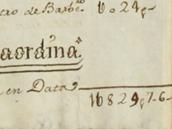 tro de Barbe. 6 0 24,,
aordina.ª
en Data 16 8 2 9,,7-6-